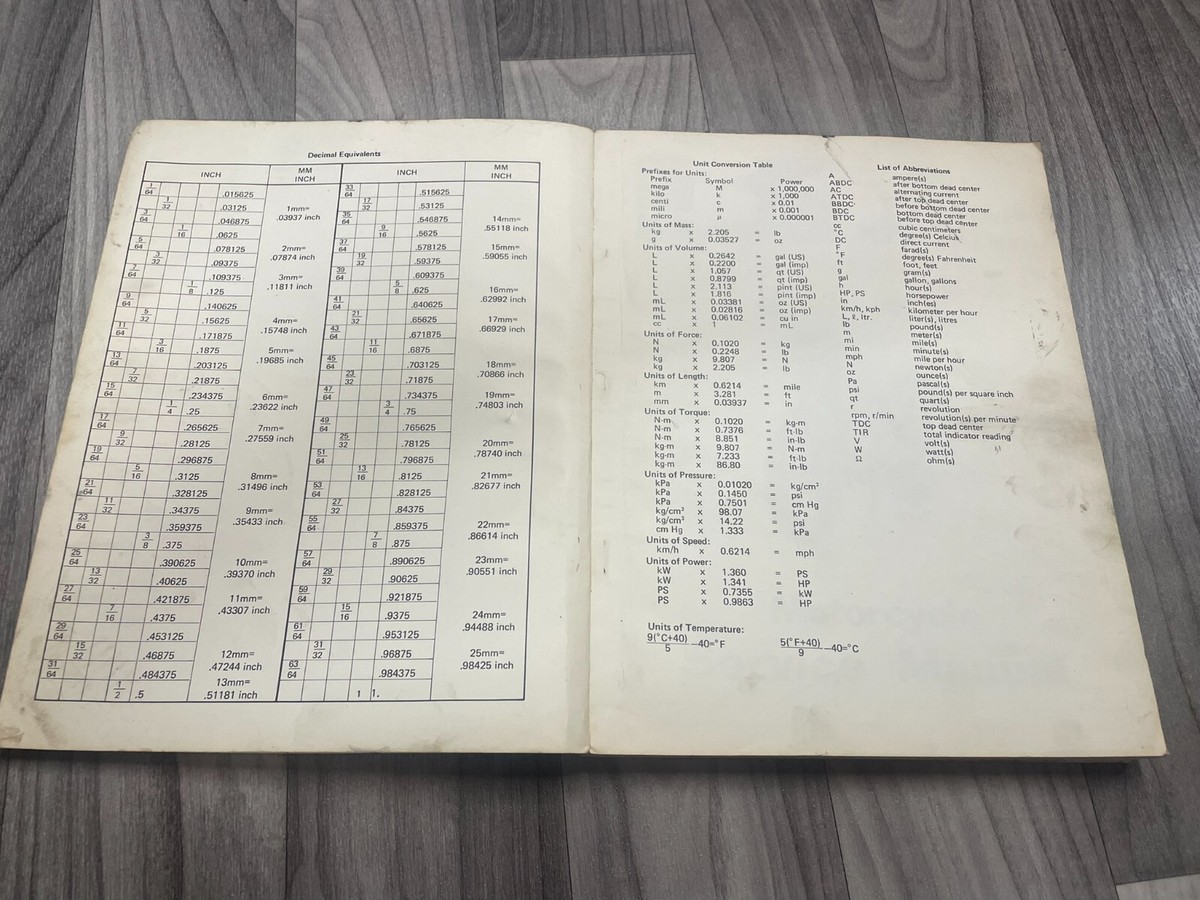 Decimal Equivalents
INCH
MM
INCH
1/64 .015625
1/32 .03125
3/64 .046875
1/16 .0625
5/64 .078125
3/32 .09375
7/64 .109375
1/8 .125
9/64 .140625
5/32 .15625
11/64 .171875
3/16 .1875
13/64 .203125
7/32 .21875
15/64 .234375
1/4 .25
17/64 .265625
9/32 .28125
19/64 .296875
5/16 .3125
21/64 .328125
11/32 .34375
23/64 .359375
3/8 .375
25/64 .390625
13/32 .40625
27/64 .421875
7/16 .4375
29/64 .453125
15/32 .46875
31/64 .484375
1/2 .5
1mm=
.03937 inch
2mm=
.07874 inch
3mm=
.11811 inch
4mm=
.15748 inch
5mm=
.19685 inch
6mm=
.23622 inch
7mm=
.27559 inch
8mm=
.31496 inch
9mm=
.35433 inch
10mm=
.39370 inch
11mm=
.43307 inch
12mm=
.47244 inch
13mm=
.51181 inch
INCH
MM
INCH
33/64 .515625
17/32 .53125
35/64 .546875
9/16 .5625
37/64 .578125
19/32 .59375
39/64 .609375
5/8 .625
41/64 .640625
21/32 .65625
43/64 .671875
11/16 .6875
45/64 .703125
23/32 .71875
47/64 .734375
3/4 .75
49/64 .765625
25/32 .78125
51/64 .796875
13/16 .8125
53/64 .828125
27/32 .84375
55/64 .859375
7/8 .875
57/64 .890625
29/32 .90625
59/64 .921875
15/16 .9375
61/64 .953125
31/32 .96875
63/64 .984375
1 1.
14mm=
.55118 inch
15mm=
.59055 inch
16mm=
.62992 inch
17mm=
.66929 inch
18mm=
.70866 inch
19mm=
.74803 inch
20mm=
.78740 inch
21mm=
.82677 inch
22mm=
.86614 inch
23mm=
.90551 inch
24mm=
.94488 inch
25mm=
.98425 inch
Unit Conversion Table
Prefixes for Units:
Prefix Symbol Power
mega M x 1,000,000
kilo k x 1,000
centi c x 0.01
mili m x 0.001
micro μ x 0.000001
Units of Mass:
kg x 2.205 = lb
g x 0.03527 = oz
Units of Volume:
L x 0.2642 = gal (US)
L x 0.2200 = gal (imp)
L x 1.057 = qt (US)
L x 0.8799 = qt (imp)
L x 2.113 = pint (US)
L x 1.816 = pint (imp)
mL x 0.03381 = oz (US)
mL x 0.02816 = oz (imp)
mL x 0.06102 = cu in
cc x 1 = mL
Units of Force:
N x 0.1020 = kg
N x 0.2248 = lb
kg x 9.807 = N
kg x 2.205 = lb
Units of Length:
km x 0.6214 = mile
m x 3.281 = ft
mm x 0.03937 = in
Units of Torque:
N·m x 0.1020 = kg·m
N·m x 0.7376 = ft·lb
N·m x 8.851 = in·lb
kg·m x 9.807 = N·m
kg·m x 7.233 = ft·lb
kg·m x 86.80 = in·lb
Units of Pressure:
kPa x 0.01020 = kg/cm²
kPa x 0.1450 = psi
kPa x 0.7501 = cm Hg
kg/cm² x 98.07 = kPa
kg/cm² x 14.22 = psi
cm Hg x 1.333 = kPa
Units of Speed:
km/h x 0.6214 = mph
Units of Power:
kW x 1.360 = PS
kW x 1.341 = HP
PS x 0.7355 = kW
PS x 0.9863 = HP
Units of Temperature:
9(°C+40)/5 −40=°F 5(°F+40)/9 −40=°C
List of Abbreviations
A ampere(s)
ABDC after bottom dead center
AC alternating current
ATDC after top dead center
BBDC before bottom dead center
BDC bottom dead center
BTDC before top dead center
cc cubic centimeters
°C degree(s) Celcius
DC direct current
F farad(s)
°F degree(s) Fahrenheit
ft foot, feet
g gram(s)
gal gallon, gallons
h hour(s)
HP, PS horsepower
in inch(es)
km/h, kph kilometer per hour
L, ℓ, ltr. liter(s), litres
lb pound(s)
m meter(s)
mi mile(s)
min minute(s)
mph mile per hour
N newton(s)
oz ounce(s)
Pa pascal(s)
psi pound(s) per square inch
qt quart(s)
r revolution
rpm, r/min revolution(s) per minute
TDC top dead center
TIR total indicator reading
V volt(s)
W watt(s)
Ω ohm(s)